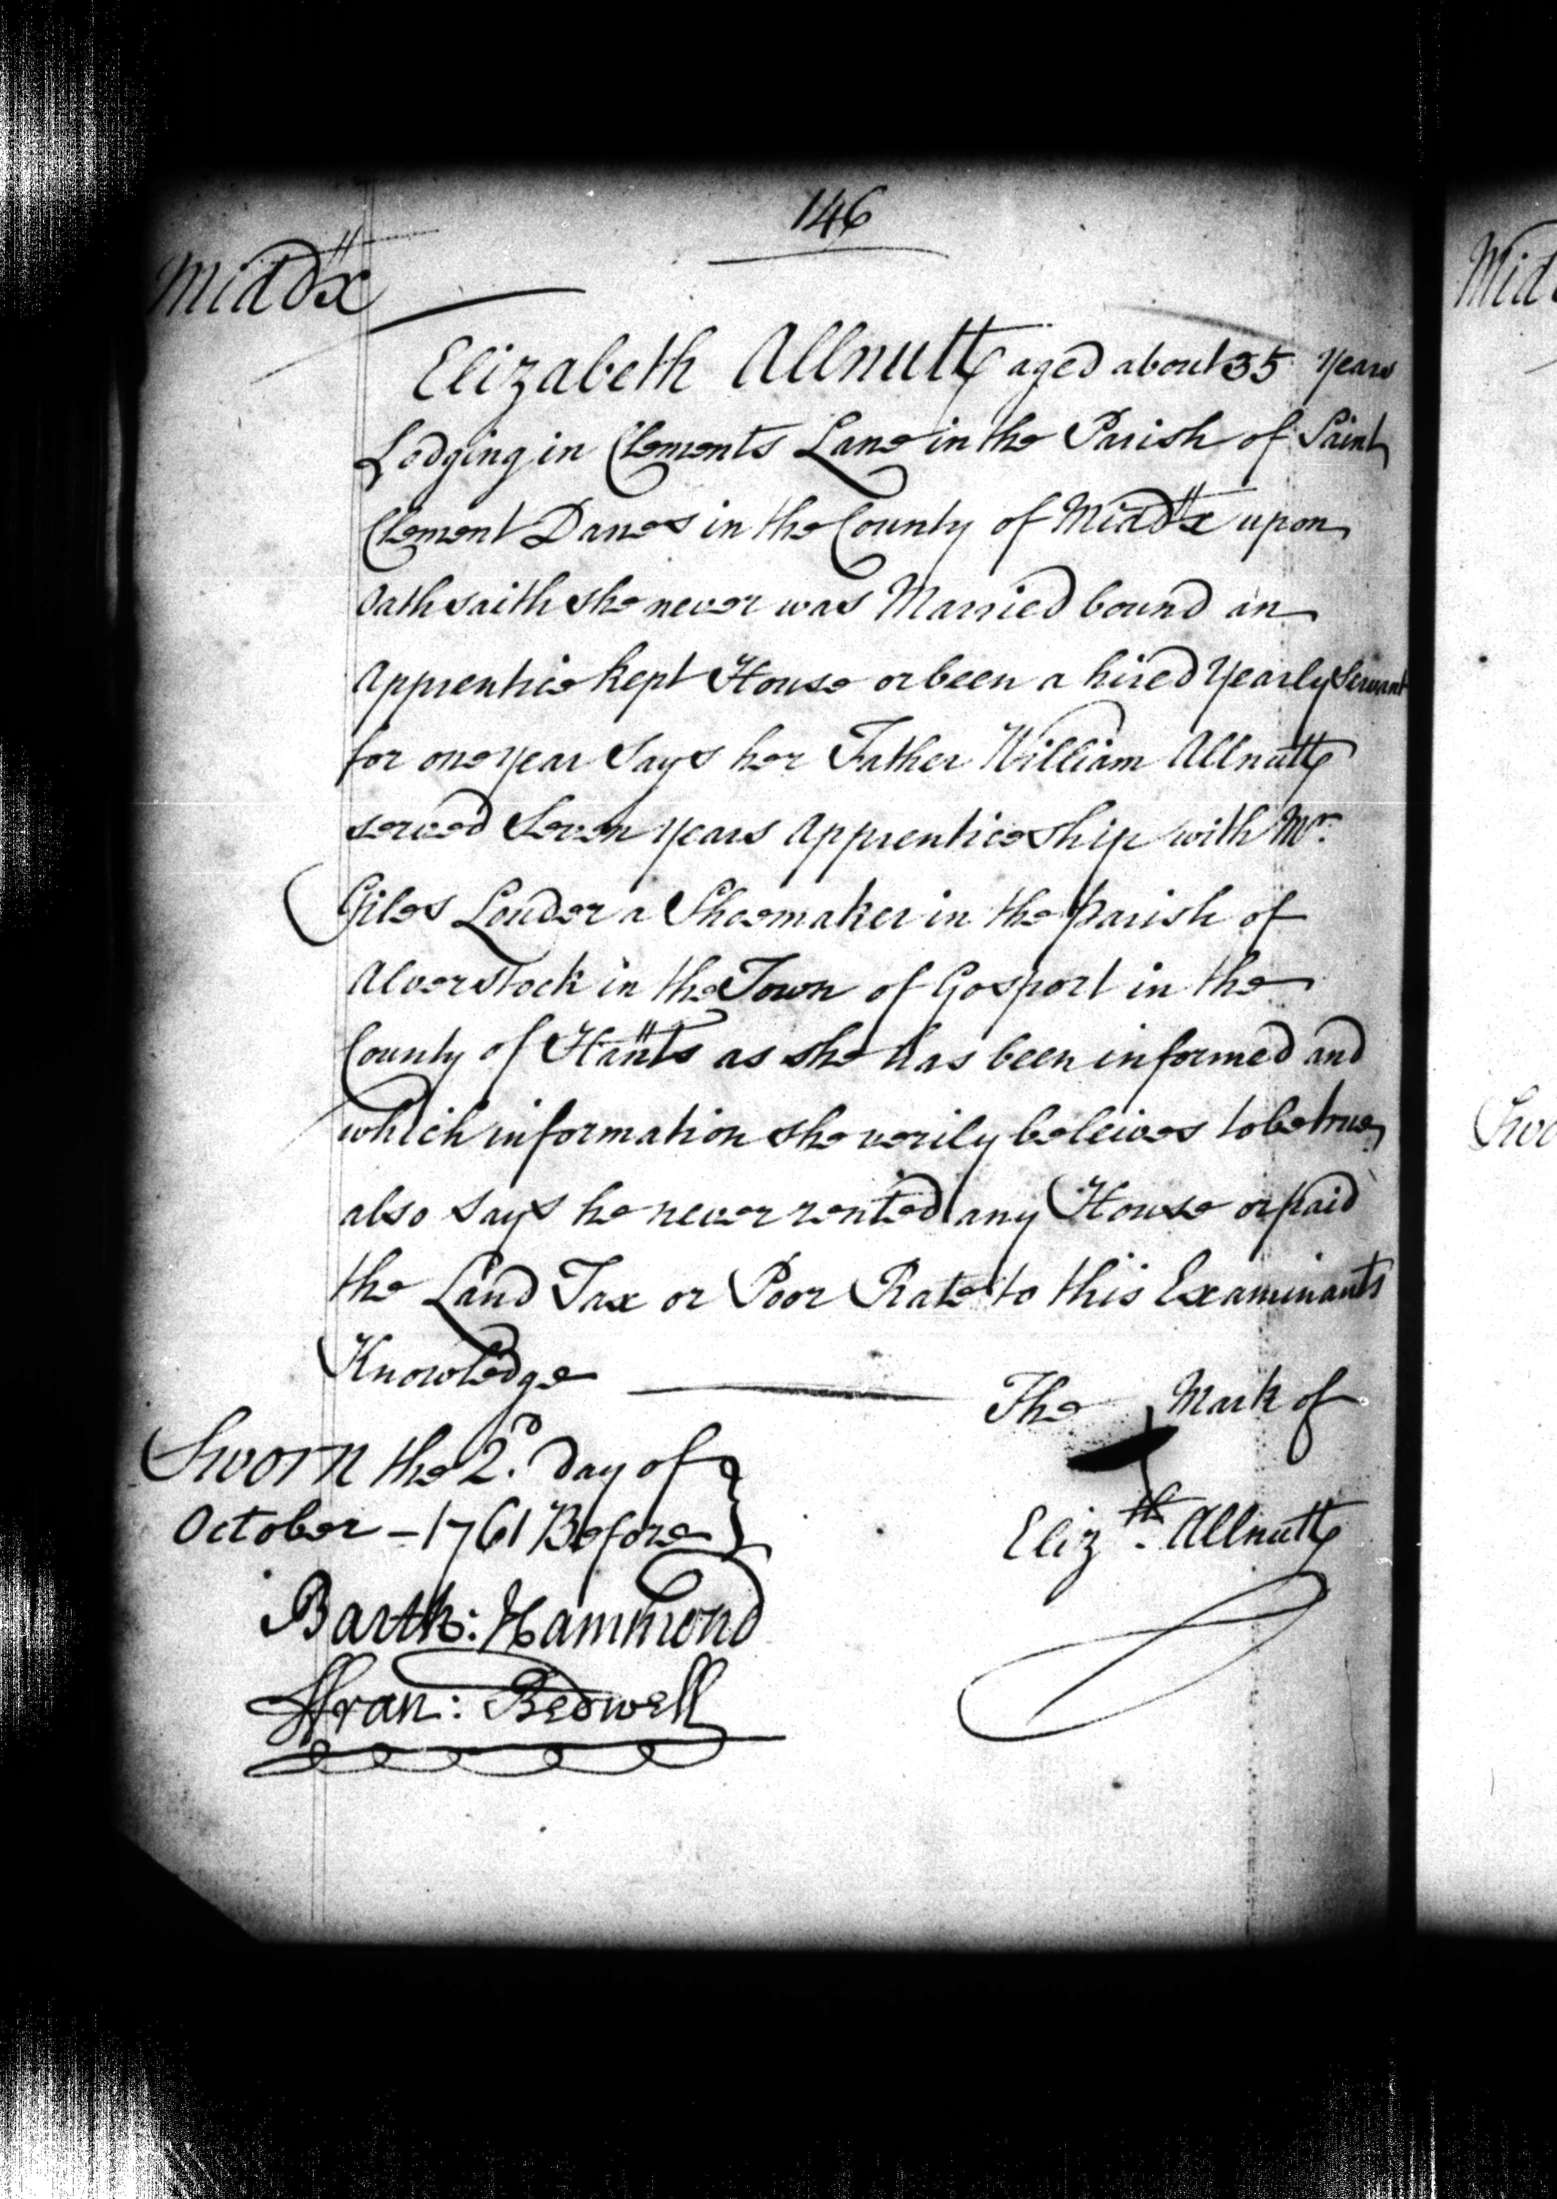 146
Middx
Elizabeth Allnutt aged about 35 Years
Lodging in Clements Lane in the Parish of Saint
Clement Danes in the County of Middx upon
Oath saith she never was Married bound an
Apprentice kept House or been a hired Yearly Servant
for one year Says her Father William Allnutt
served Seven years Apprenticeship with Mr.
Giles Louder a Shoemaker in the Parish of
Alverstock in the Town of Gosport in the
County of Hants as she has been informed and
which information she verily beleives to be true
also says he never rented any House or paid
the Land Tax or Poor Rate to this Examinants
Knowledge
The Mark of
Eliz.th Allnutt
Sworn the 2d. day of
October - 1761 Before
Barth: Hammond
Fran: Bedwell
Mid
Swo